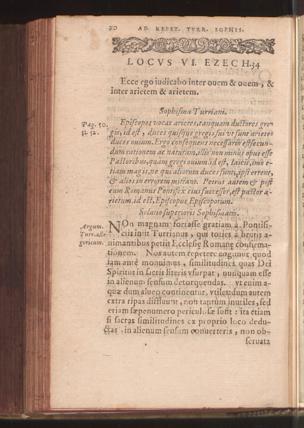 20 AD REPET. TVRR. SOPHIS.
LOCVS VI. EZECH. 34
Ecce ego iudicabo inter ouem & ouem, &
inter arietem & arietem.
Sophisma Turriani.
Pag. 50. & 52.
Episcopos vocat arietes, tanquam ductores gre-
gis, id est, duces quisque gregis sui vt sunt arietes
duces ouium. Ergo consequens necessariò est secun-
dum rationem ac naturam, alijs non minùs opus esse
Pastoribus, quàm gregi ouium id est, laicis, imò e-
tiam magis, ne qui aliorum duces sunt, ipsi errent,
& alios in errorem mittant. Petrus autem & post
eum Romanus Pontifex eius successor, est pastor a-
rietum, id est, Episcopus Episcoporum.
Solutio superioris Sophismatis.
Argum. Turr. alle- goricum.
NOn magnam fortasse gratiam à Pontifi-
cijs inibit Turrianus, qui toties à brutis a-
nimantibus petit Ecclesiæ Romanæ confirma-
tionem. Non autem repetere oportet quod
iam antè monuimus, similitudines quas Dei
Spiritus in sacris literis vsurpat, nusquam esse
in alienum sensum detorquendas. vt enim a-
quæ dum alueo continentur, vtiles, dum autem
extra ripas diffluunt, non tantùm inutiles, sed
etiam sæpenumero periculosæ sunt: ita etiam
si sacras similitudines ex proprio loco dedu-
ctas, in alienum sensum conuerteris, non ob-
seruata